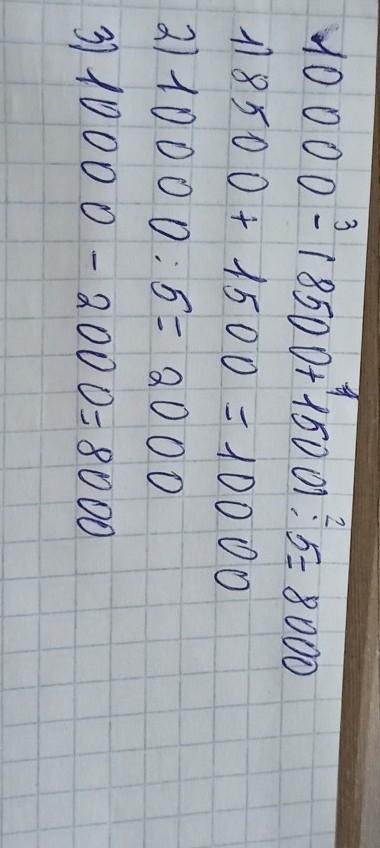 10000-(8500+1500):5=8000
3 1 2
1) 8500+1500=10000
2) 10000:5=2000
3) 10000-2000=8000